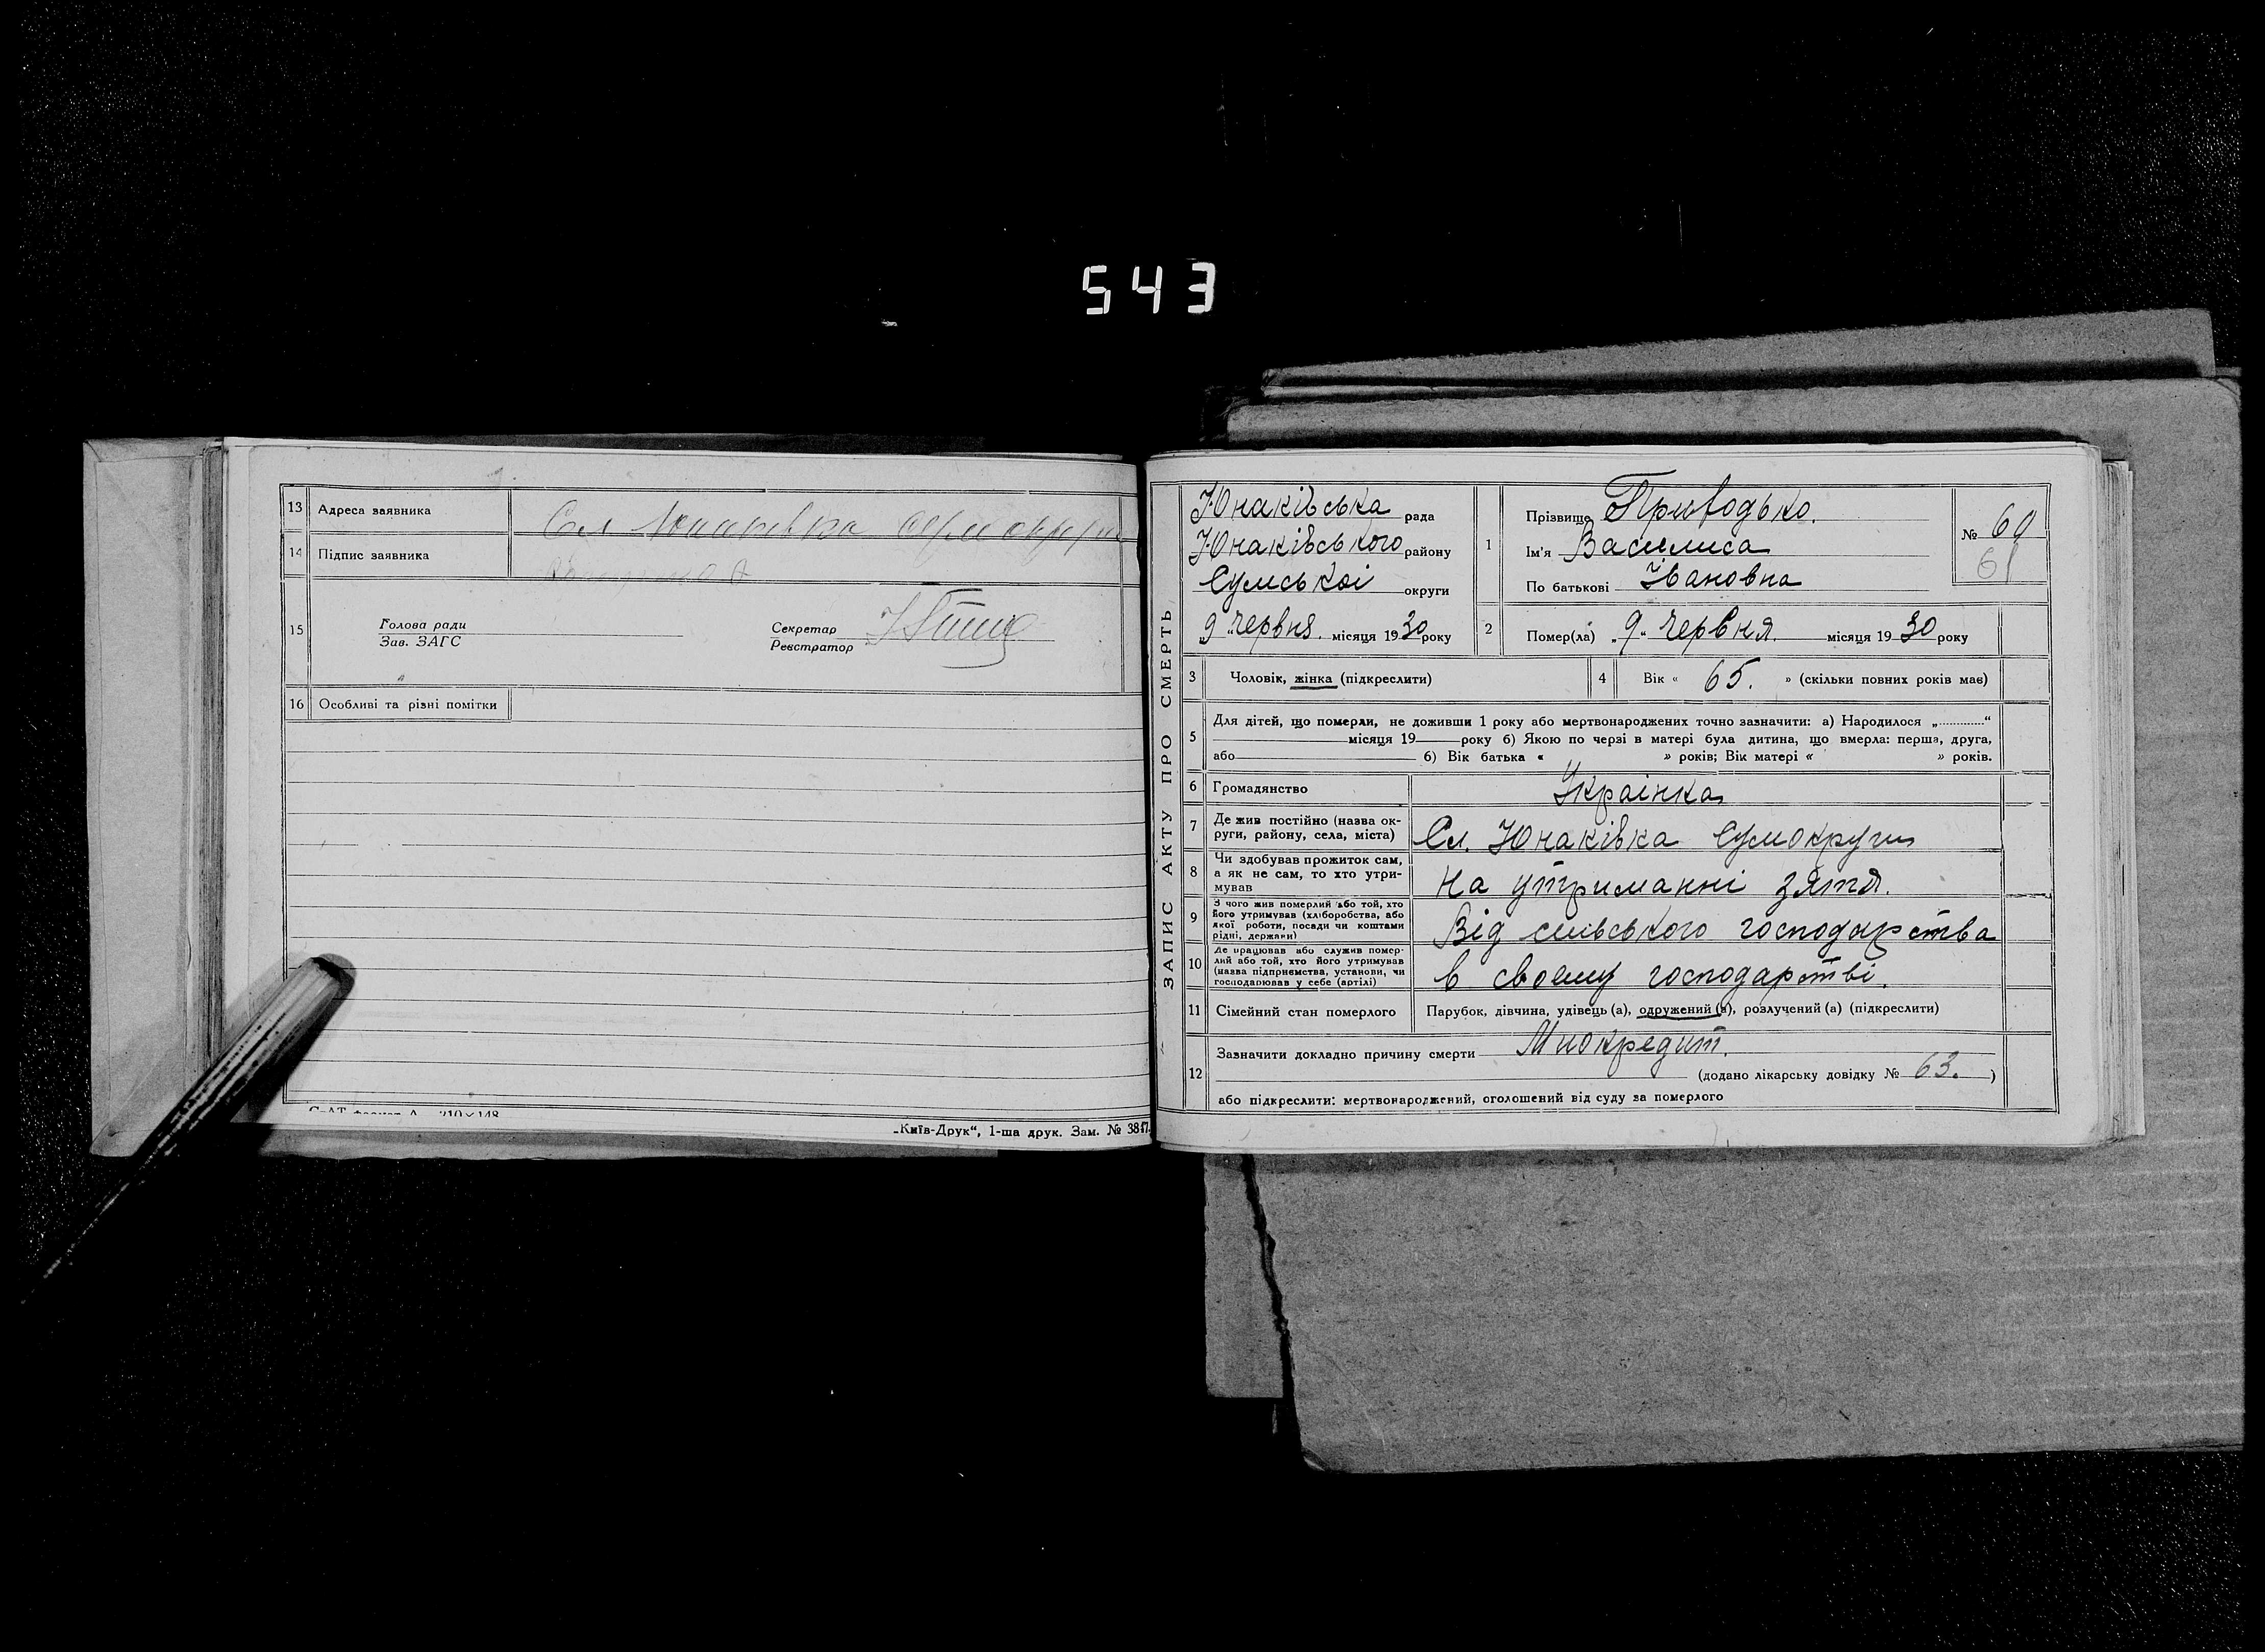 543
13 Адреса заявника Сл Юнаківка
14 Підпис заявника
15 Голова ради
Зав. ЗАГС
Секретар
Реєстратор
16 Особливі та різні помітки
„Київ-Друк“, 1-ша друк. Зам. №
ЗАПИС АКТУ ПРО СМЕРТЬ
Юнаківська рада
Юнаківського району
Сумської округи
„9“ червня місяця 1930 року
1 Прізвище Приводько.
Ім'я Василиса
По батькові Івановна
№ 60
61
2 Помер(ла) „9“ червня місяця 1930 року
3 Чоловік, жінка (підкреслити)
4 Вік « 65. » (скільки повних років має)
5 Для дітей, що померли, не доживши 1 року або мертвонароджених точно зазначити: а) Народилося „............“
місяця 19 року б) Якою по черзі в матері була дитина, що вмерла: перша, друга,
або б) Вік батька « » років; Вік матері « » років.
6 Громадянство Українка
7 Де жив постійно (назва ок-
руги, району, села, міста) Сл. Юнаківка Сумокруги
8 Чи здобував прожиток сам,
а як не сам, то хто утри-
мував На утриманні зятя.
9 З чого жив померлий або той, хто
його утримував (хліборобства, або
якої роботи, посади чи коштами
рідні, держави) Від сільського господарства
10 Де працював або служив помер-
лий або той, хто його утримував
(назва підприємства, установи, чи
господарював у себе (артілі) в своєму господарстві.
11 Сімейний стан померлого Парубок, дівчина, удівець (а), одружений (а), розлучений (а) (підкреслити)
12 Зазначити докладно причину смерти
(додано лікарську довідку № 63. )
або підкреслити: мертвонароджений, оголошений від суду за померлого